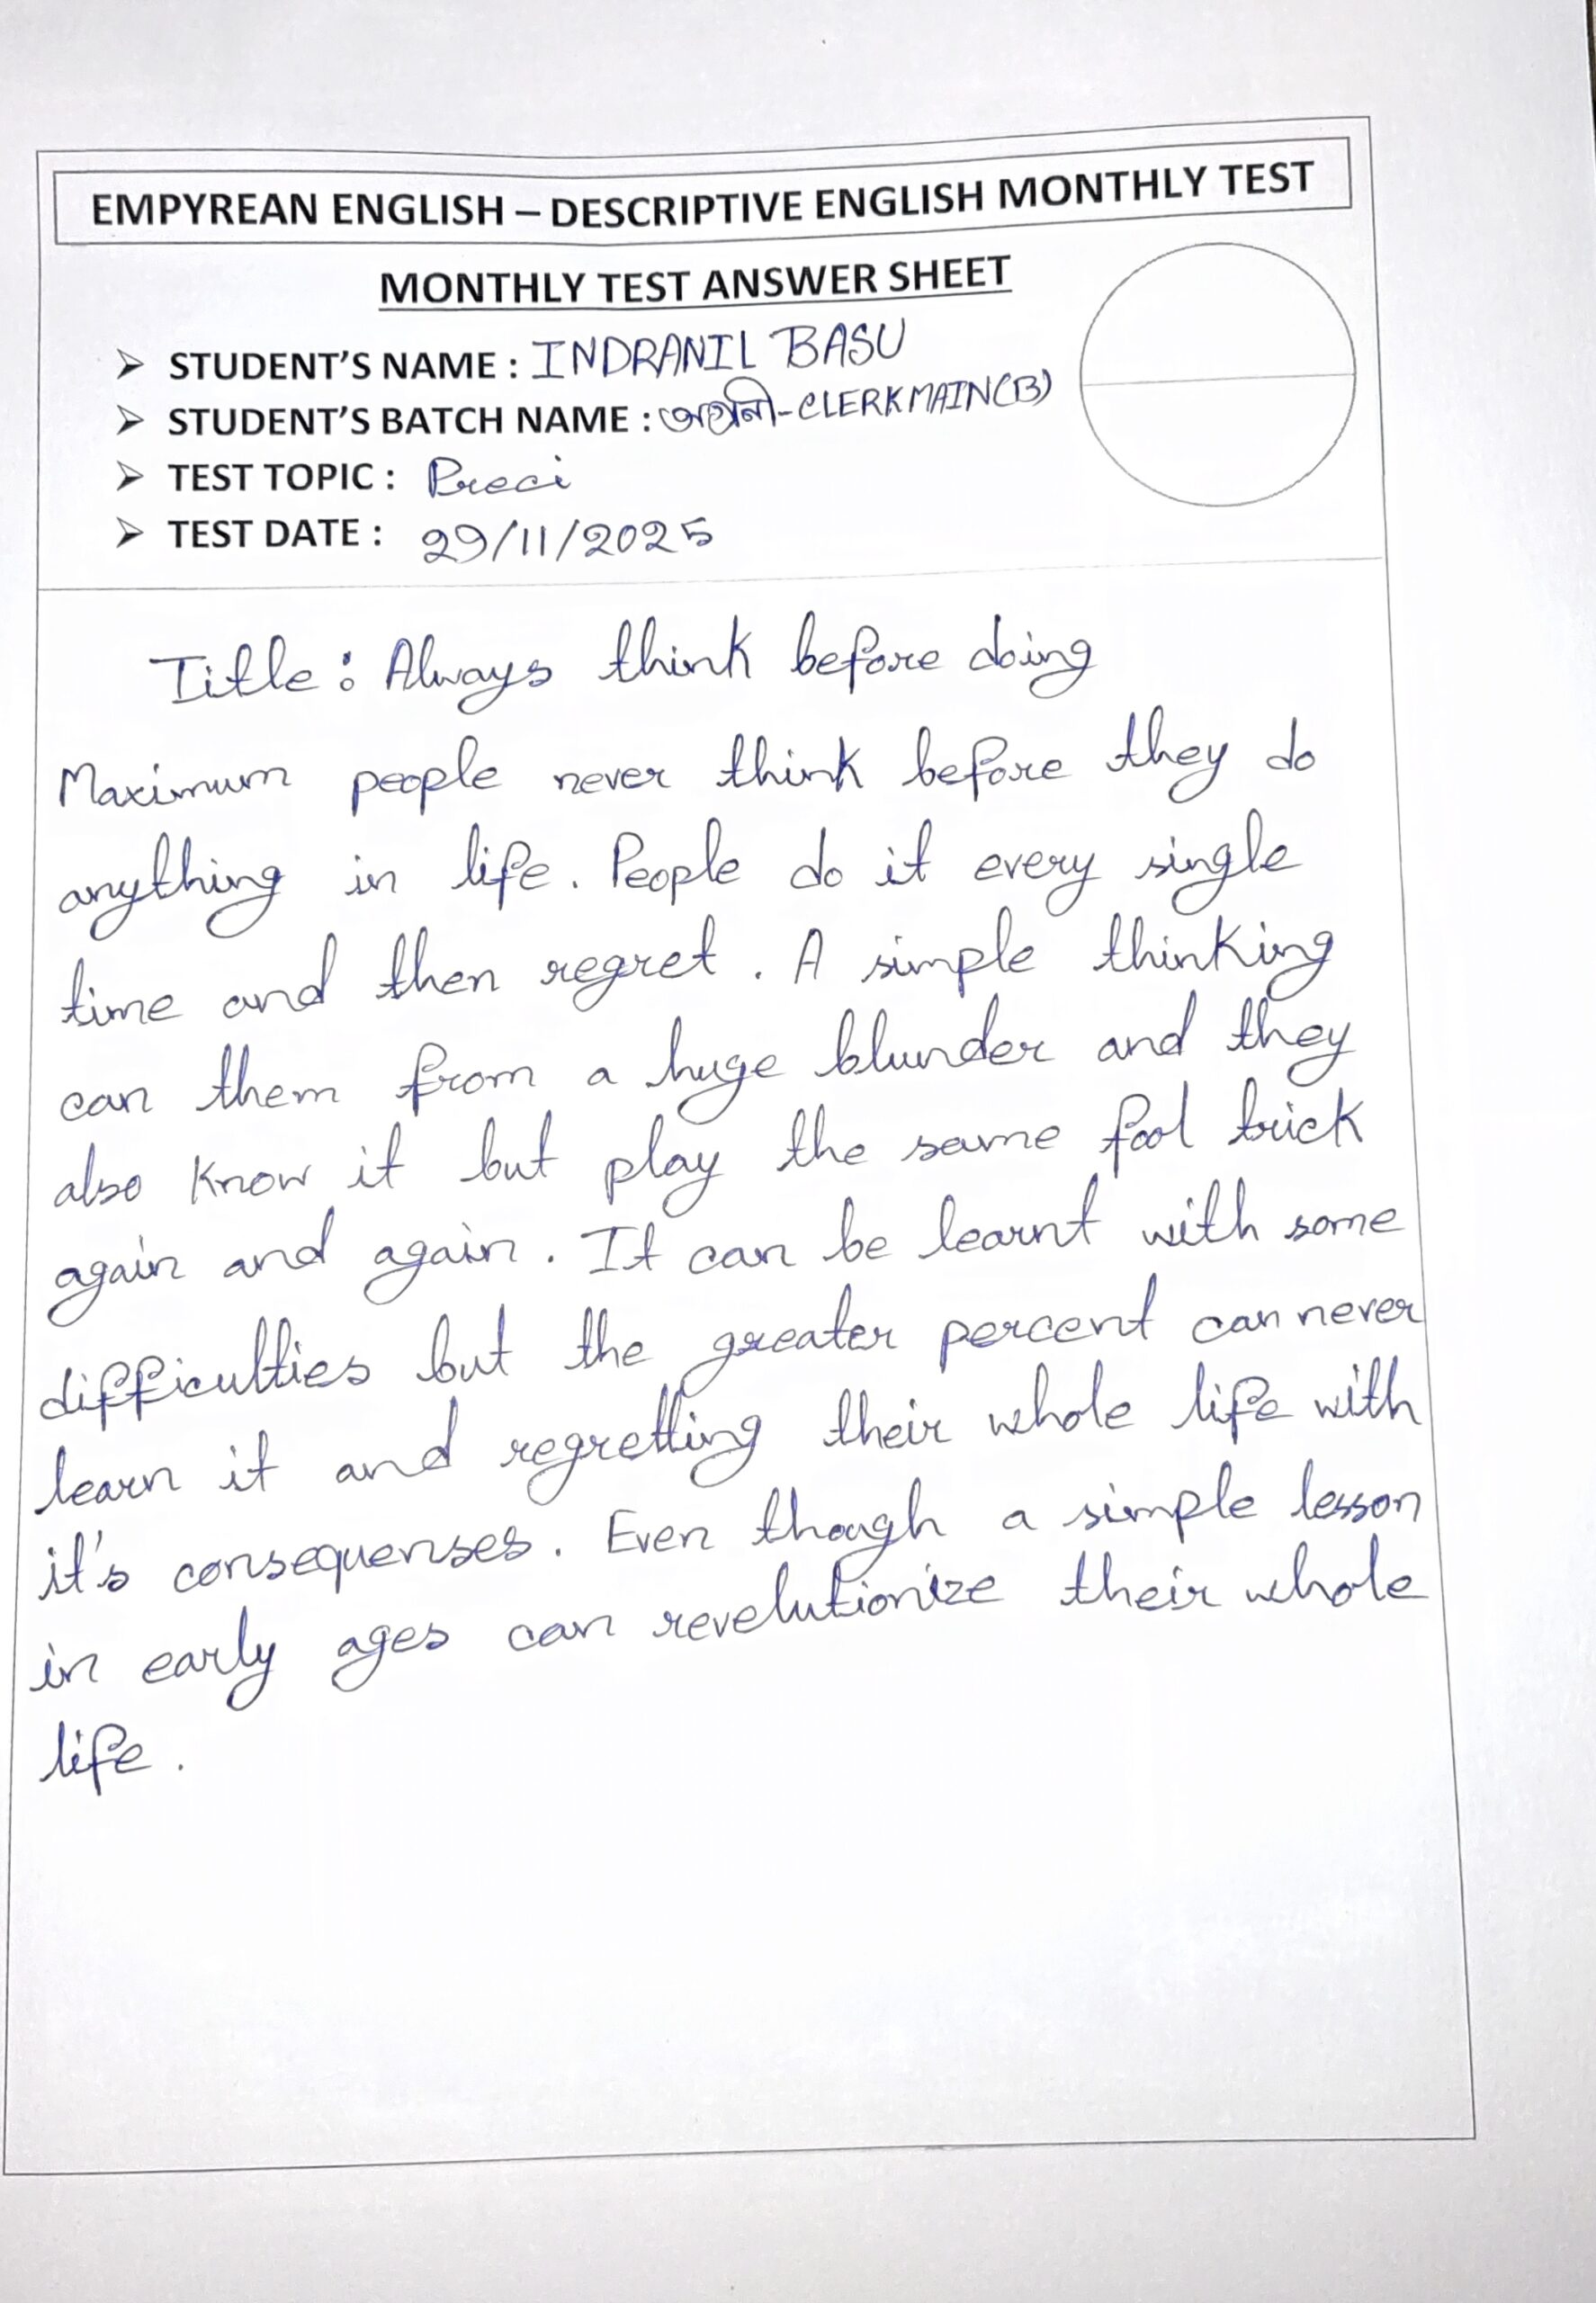 EMPYREAN ENGLISH – DESCRIPTIVE ENGLISH MONTHLY TEST
MONTHLY TEST ANSWER SHEET
➢ STUDENT'S NAME : INDRANIL BASU
➢ STUDENT'S BATCH NAME : -CLERKMAIN(B)
➢ TEST TOPIC : Preci
➢ TEST DATE : 29/11/2025
Title : Always think before doing
Maximum people never think before they do
anything in life. People do it every single
time and then regret. A simple thinking
can them from a huge blunder and they
also know it but play the same fool trick
again and again. It can be learnt with some
difficulties but the greater percent can never
learn it and regretting their whole life with
it's consequenses. Even though a simple lesson
in early ages can revelutionize their whole
life.